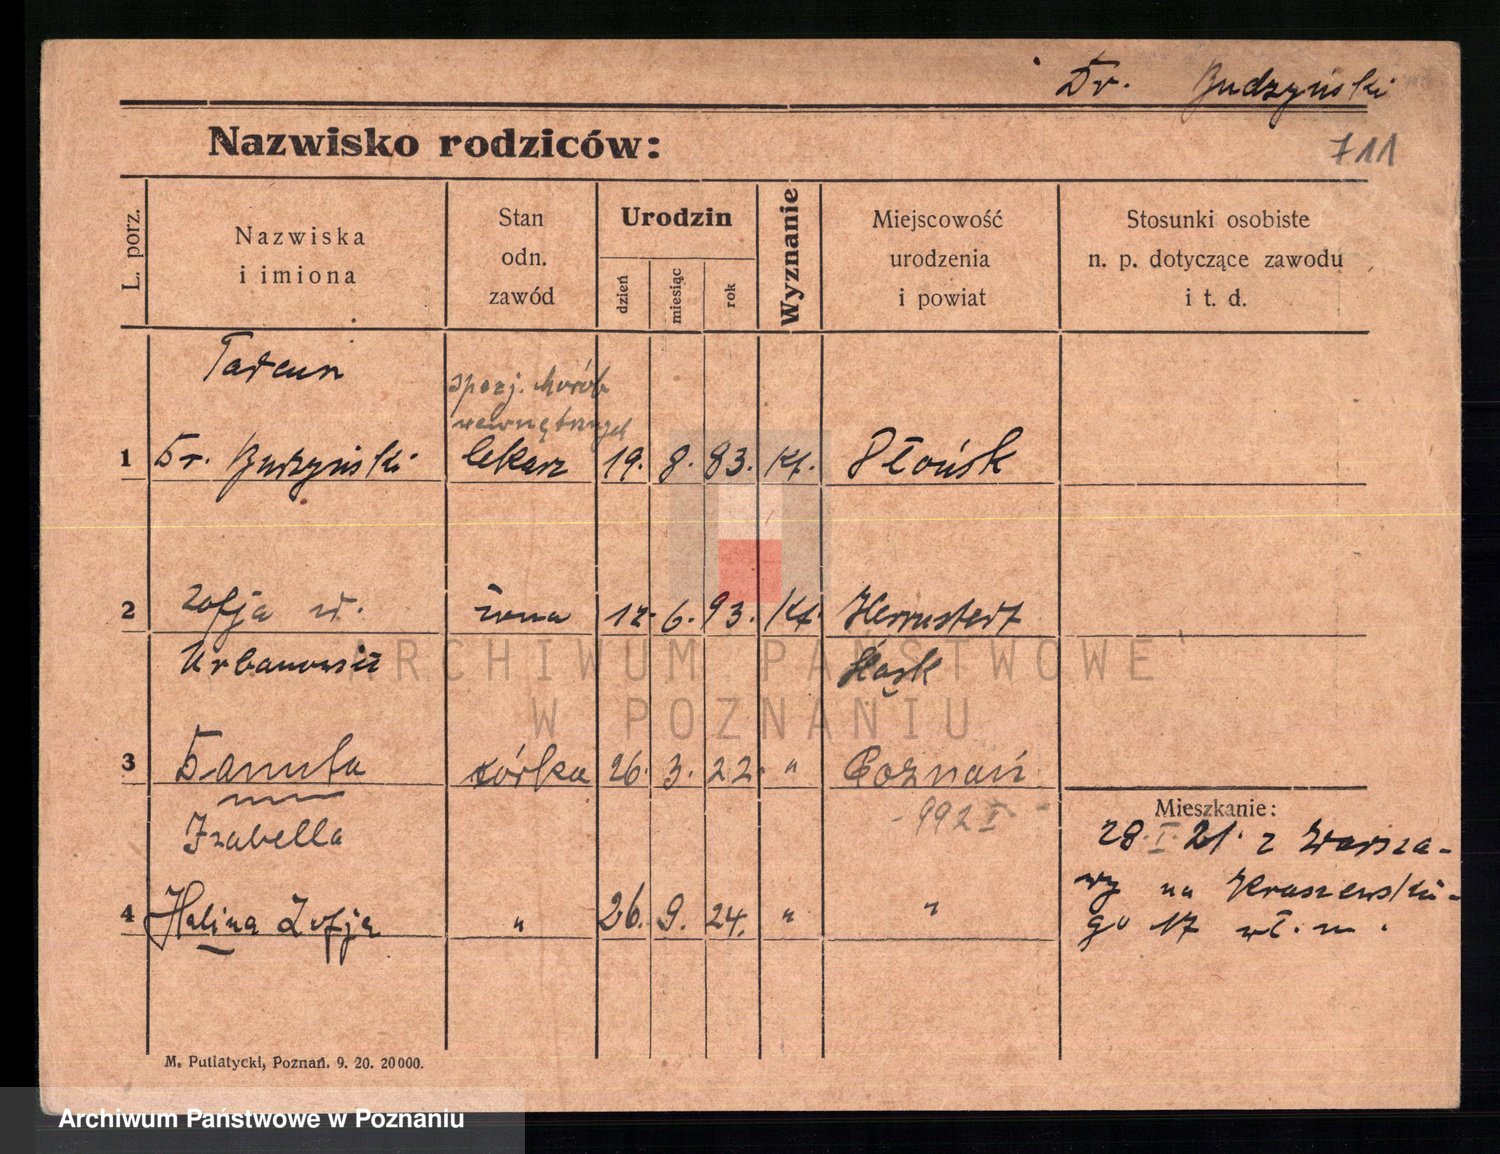 Dr. Budzyński
Nazwisko rodziców:
711
L. porz.
Nazwiska
i imiona
Stan
odn.
zawód
Urodzin
dzień
miesiąc
rok
Wyznanie
Miejscowość
urodzenia
i powiat
Stosunki osobiste
n. p. dotyczące zawodu
i t. d.
spezj. chorób
wewnętrznych
1 Dr. Budzyński lekarz 19. 8. 83. Kt. Płońsk
2 Zofja żona 12. 6. 93. Kt. Herrnstedt
Urbanowicz Śląsk
3 Danuta córka 26. 3. 22. " Poznań
Izabella - 992 I -
4 Halina Zofja " 26. 9. 24. " "
Mieszkanie:
28. I. 21. z Warsza-
wy na Kraszewskie-
go 17 wł. m.
M. Putiatycki, Poznań. 9. 20. 20000.
ARCHIWUM PAŃSTWOWE
W POZNANIU
Archiwum Państwowe w Poznaniu